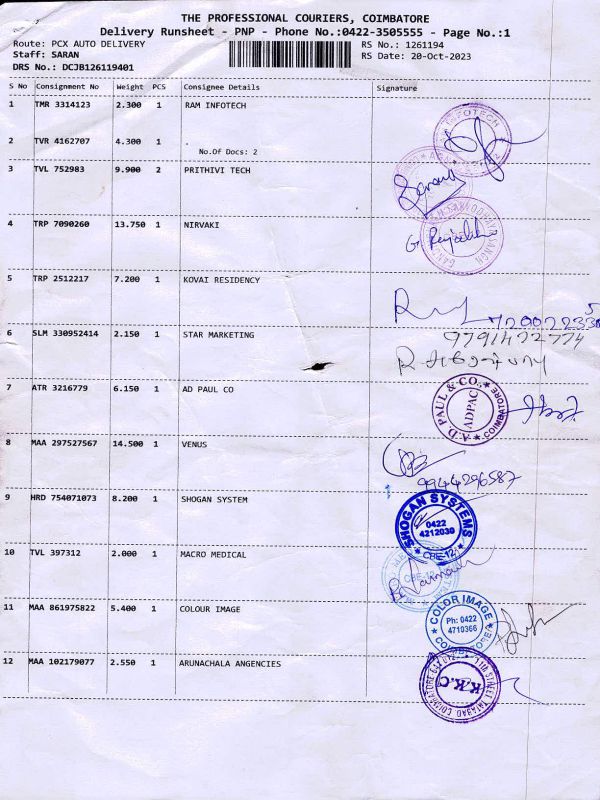 THE PROFESSIONAL COURIERS, COIMBATORE
Delivery Runsheet - PNP - Phone No.:0422-3505555 - Page No.:1
Route: PCX AUTO DELIVERY RS No.: 1261194
Staff: SARAN RS Date: 20-Oct-2023
DRS No.: DCJB126119401
S No Consignment No Weight PCS Consignee Details Signature
1 TMR 3314123 2.300 1 RAM INFOTECH
INFOTECH
2 TVR 4162707 4.300 1 .
No.Of Docs: 2
3 TVL 752983 9.900 2 PRITHIVI TECH
4 TRP 7090260 13.750 1 NIRVAKI
5 TRP 2512217 7.200 1 KOVAI RESIDENCY
6 SLM 330952414 2.150 1 STAR MARKETING
9791422774
7 ATR 3216779 6.150 1 AD PAUL CO
A. D. PAUL & CO., COIMBATORE
ADPAC
8 MAA 297527567 14.500 1 VENUS
9944296587
9 HRD 754071073 8.200 1 SHOGAN SYSTEM
SHOGAN SYSTEMS
0422
4212030
CBE-12
10 TVL 397312 2.000 1 MACRO MEDICAL
CBE-12
11 MAA 861975822 5.400 1 COLOUR IMAGE
COLOR IMAGE
Ph: 0422
4710366
COIMBATORE
12 MAA 102179077 2.550 1 ARUNACHALA ANGENCIES
K.K.C